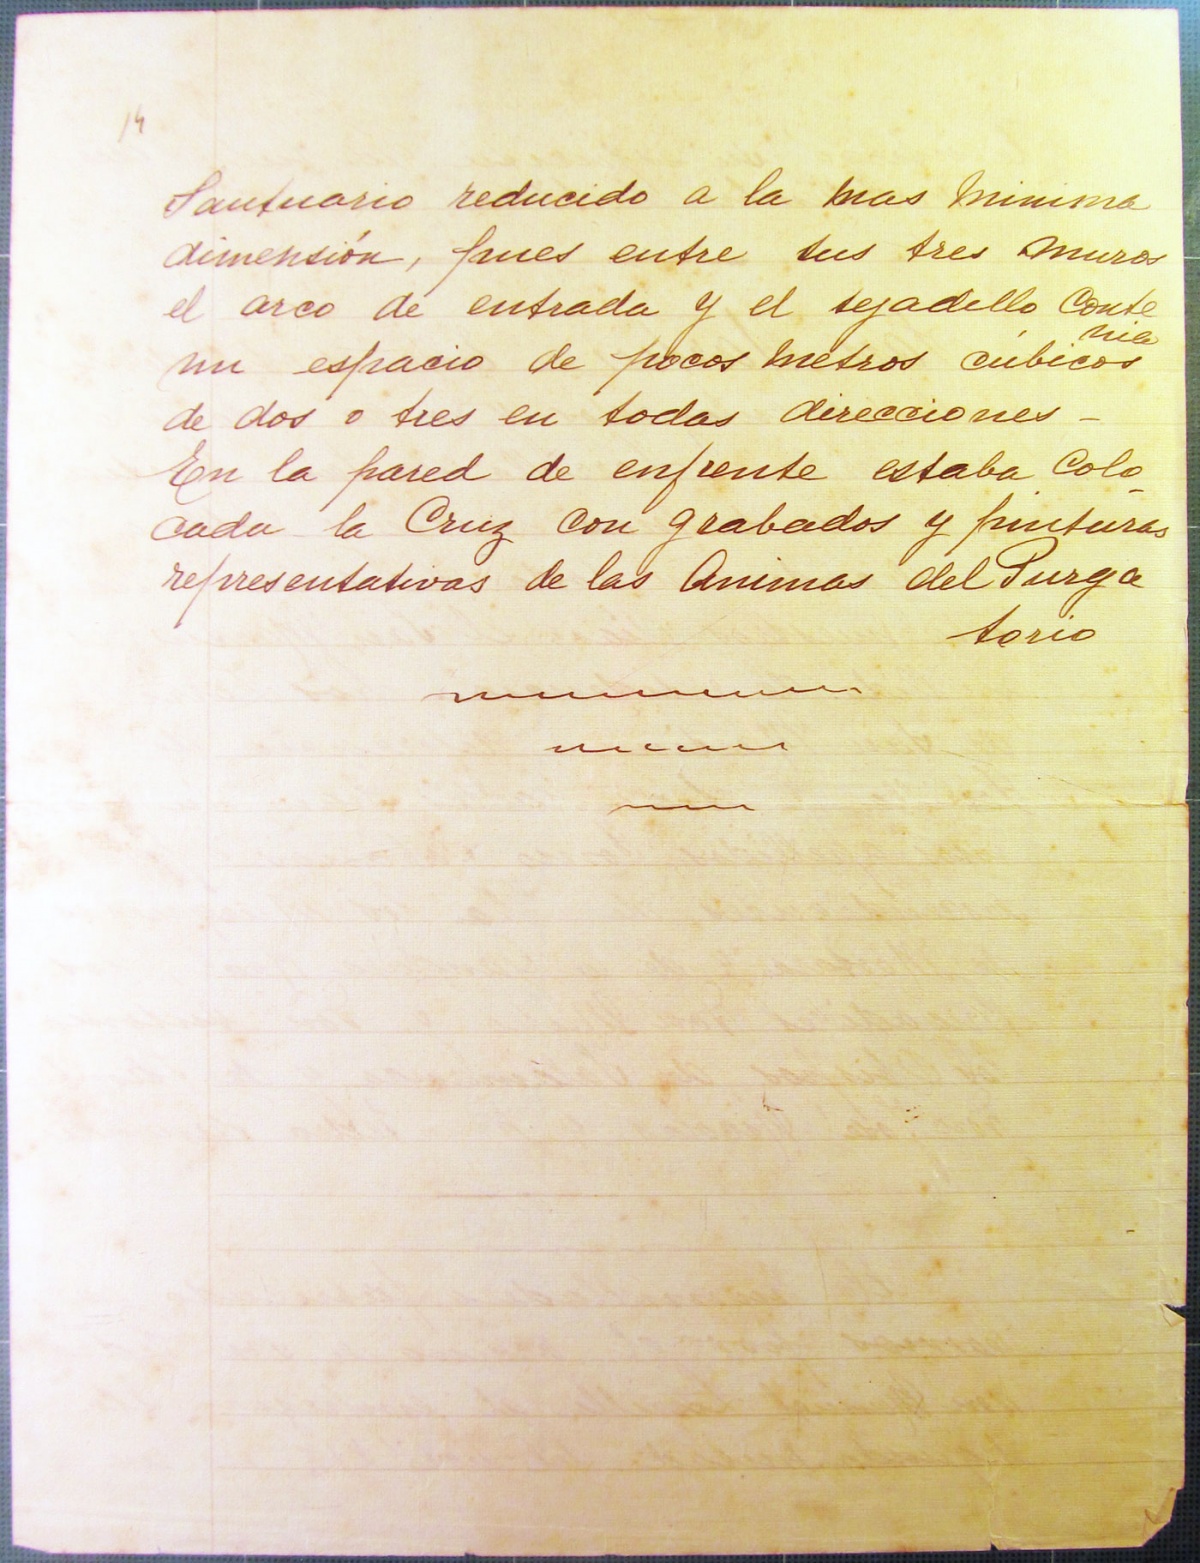 14
Santuario reducido a la mas minima
dimensión, pues entre sus tres muros
el arco de entrada y el tejadillo conte
nia
un espacio de pocos metros cúbicos
de dos o tres en todas direcciones -
En la pared de enfrente estaba Colo-
cada la Cruz con grabados y pinturas
representativas de las Animas del Purga
torio